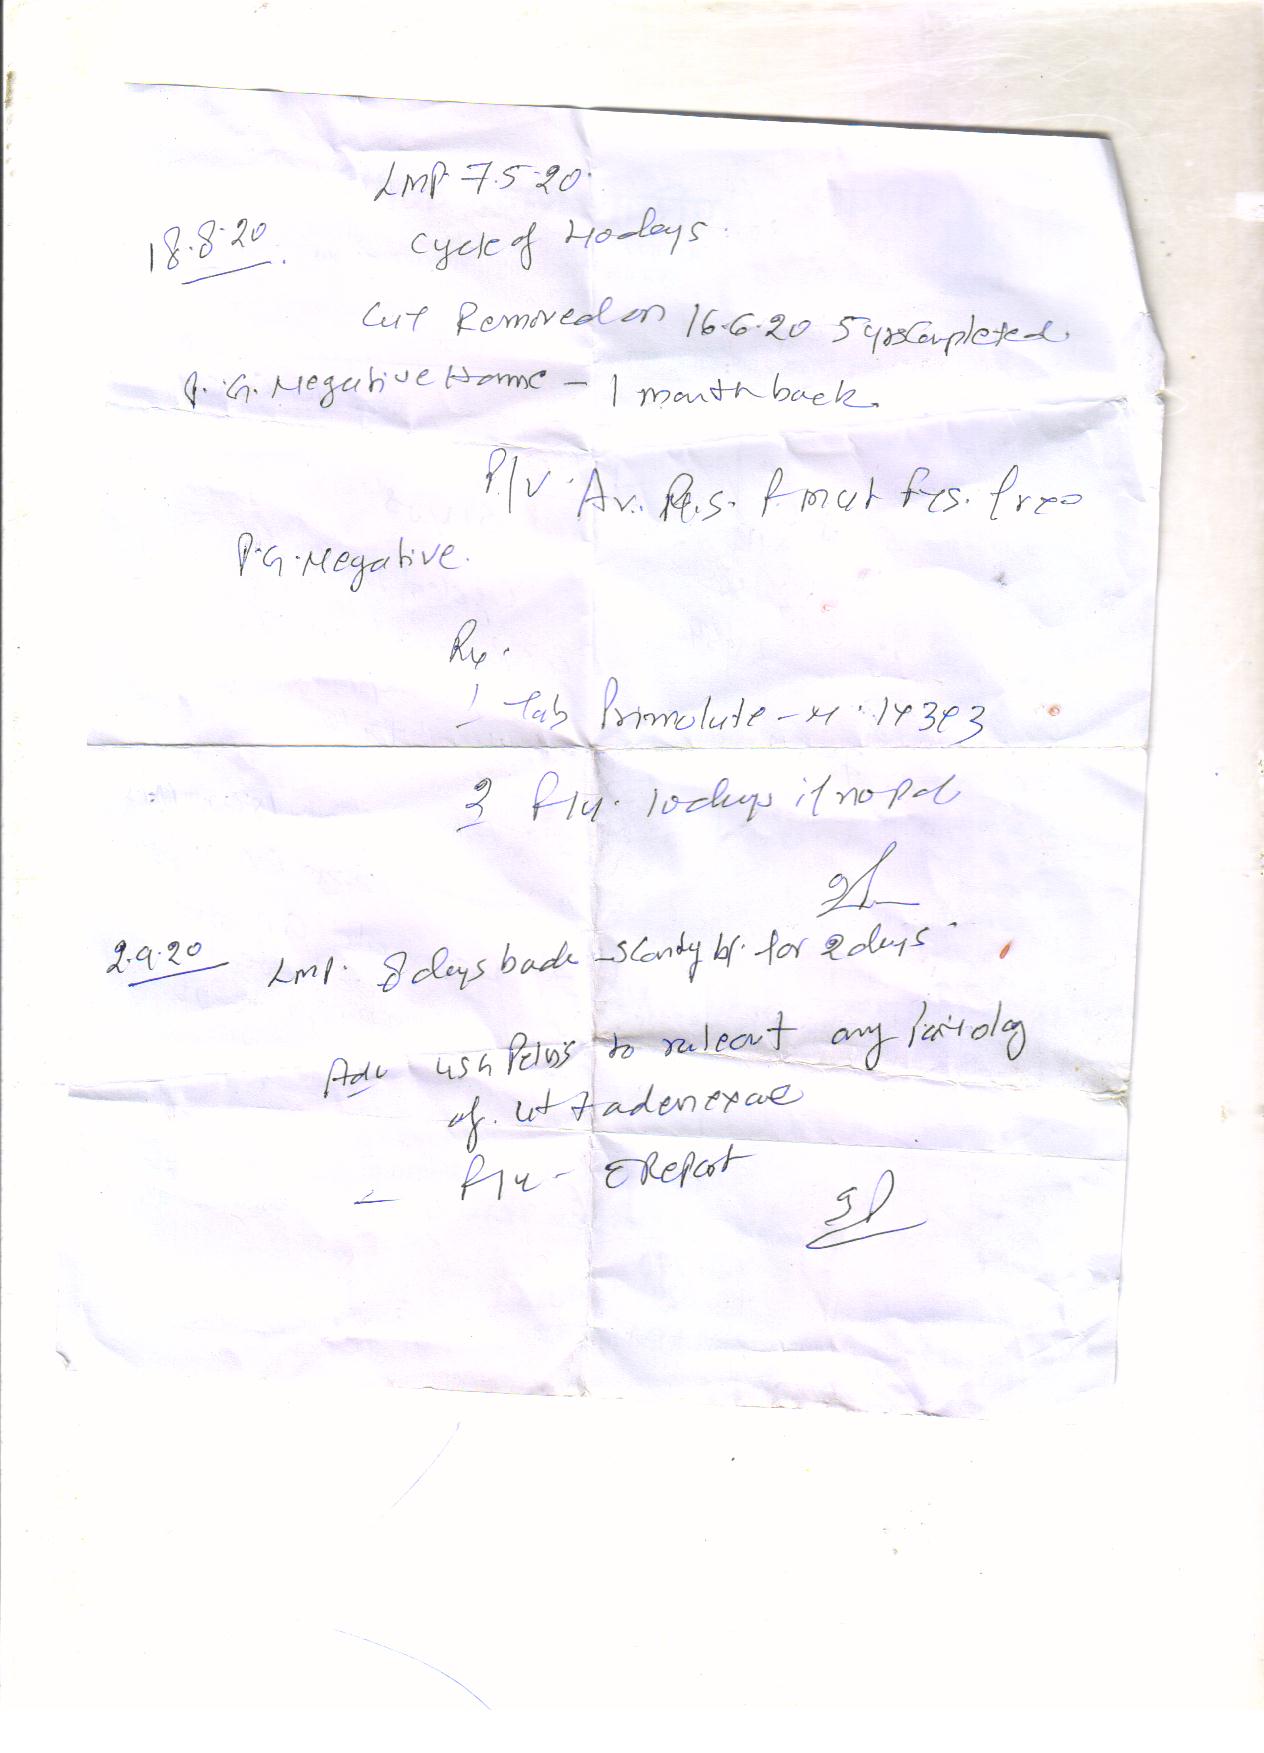 LMP 7.5.20.
18.8.20. Cycle of 40 days.
CuT Removed on 16.6.20 5 yrs Completed.
P.G. Negative Home - 1 month back.
P/V. Av. P.S. free
P.G. Negative.
Rx.
1 Tab Primolute-N. 1x3x3
2 F/u. 10 days if no Pd
2.9.20 LMP. 8 days back - Scanty bl. for 2 days
Adv USG Pelvis to ruleout any
of. ut + adenexae
- F/u - Report